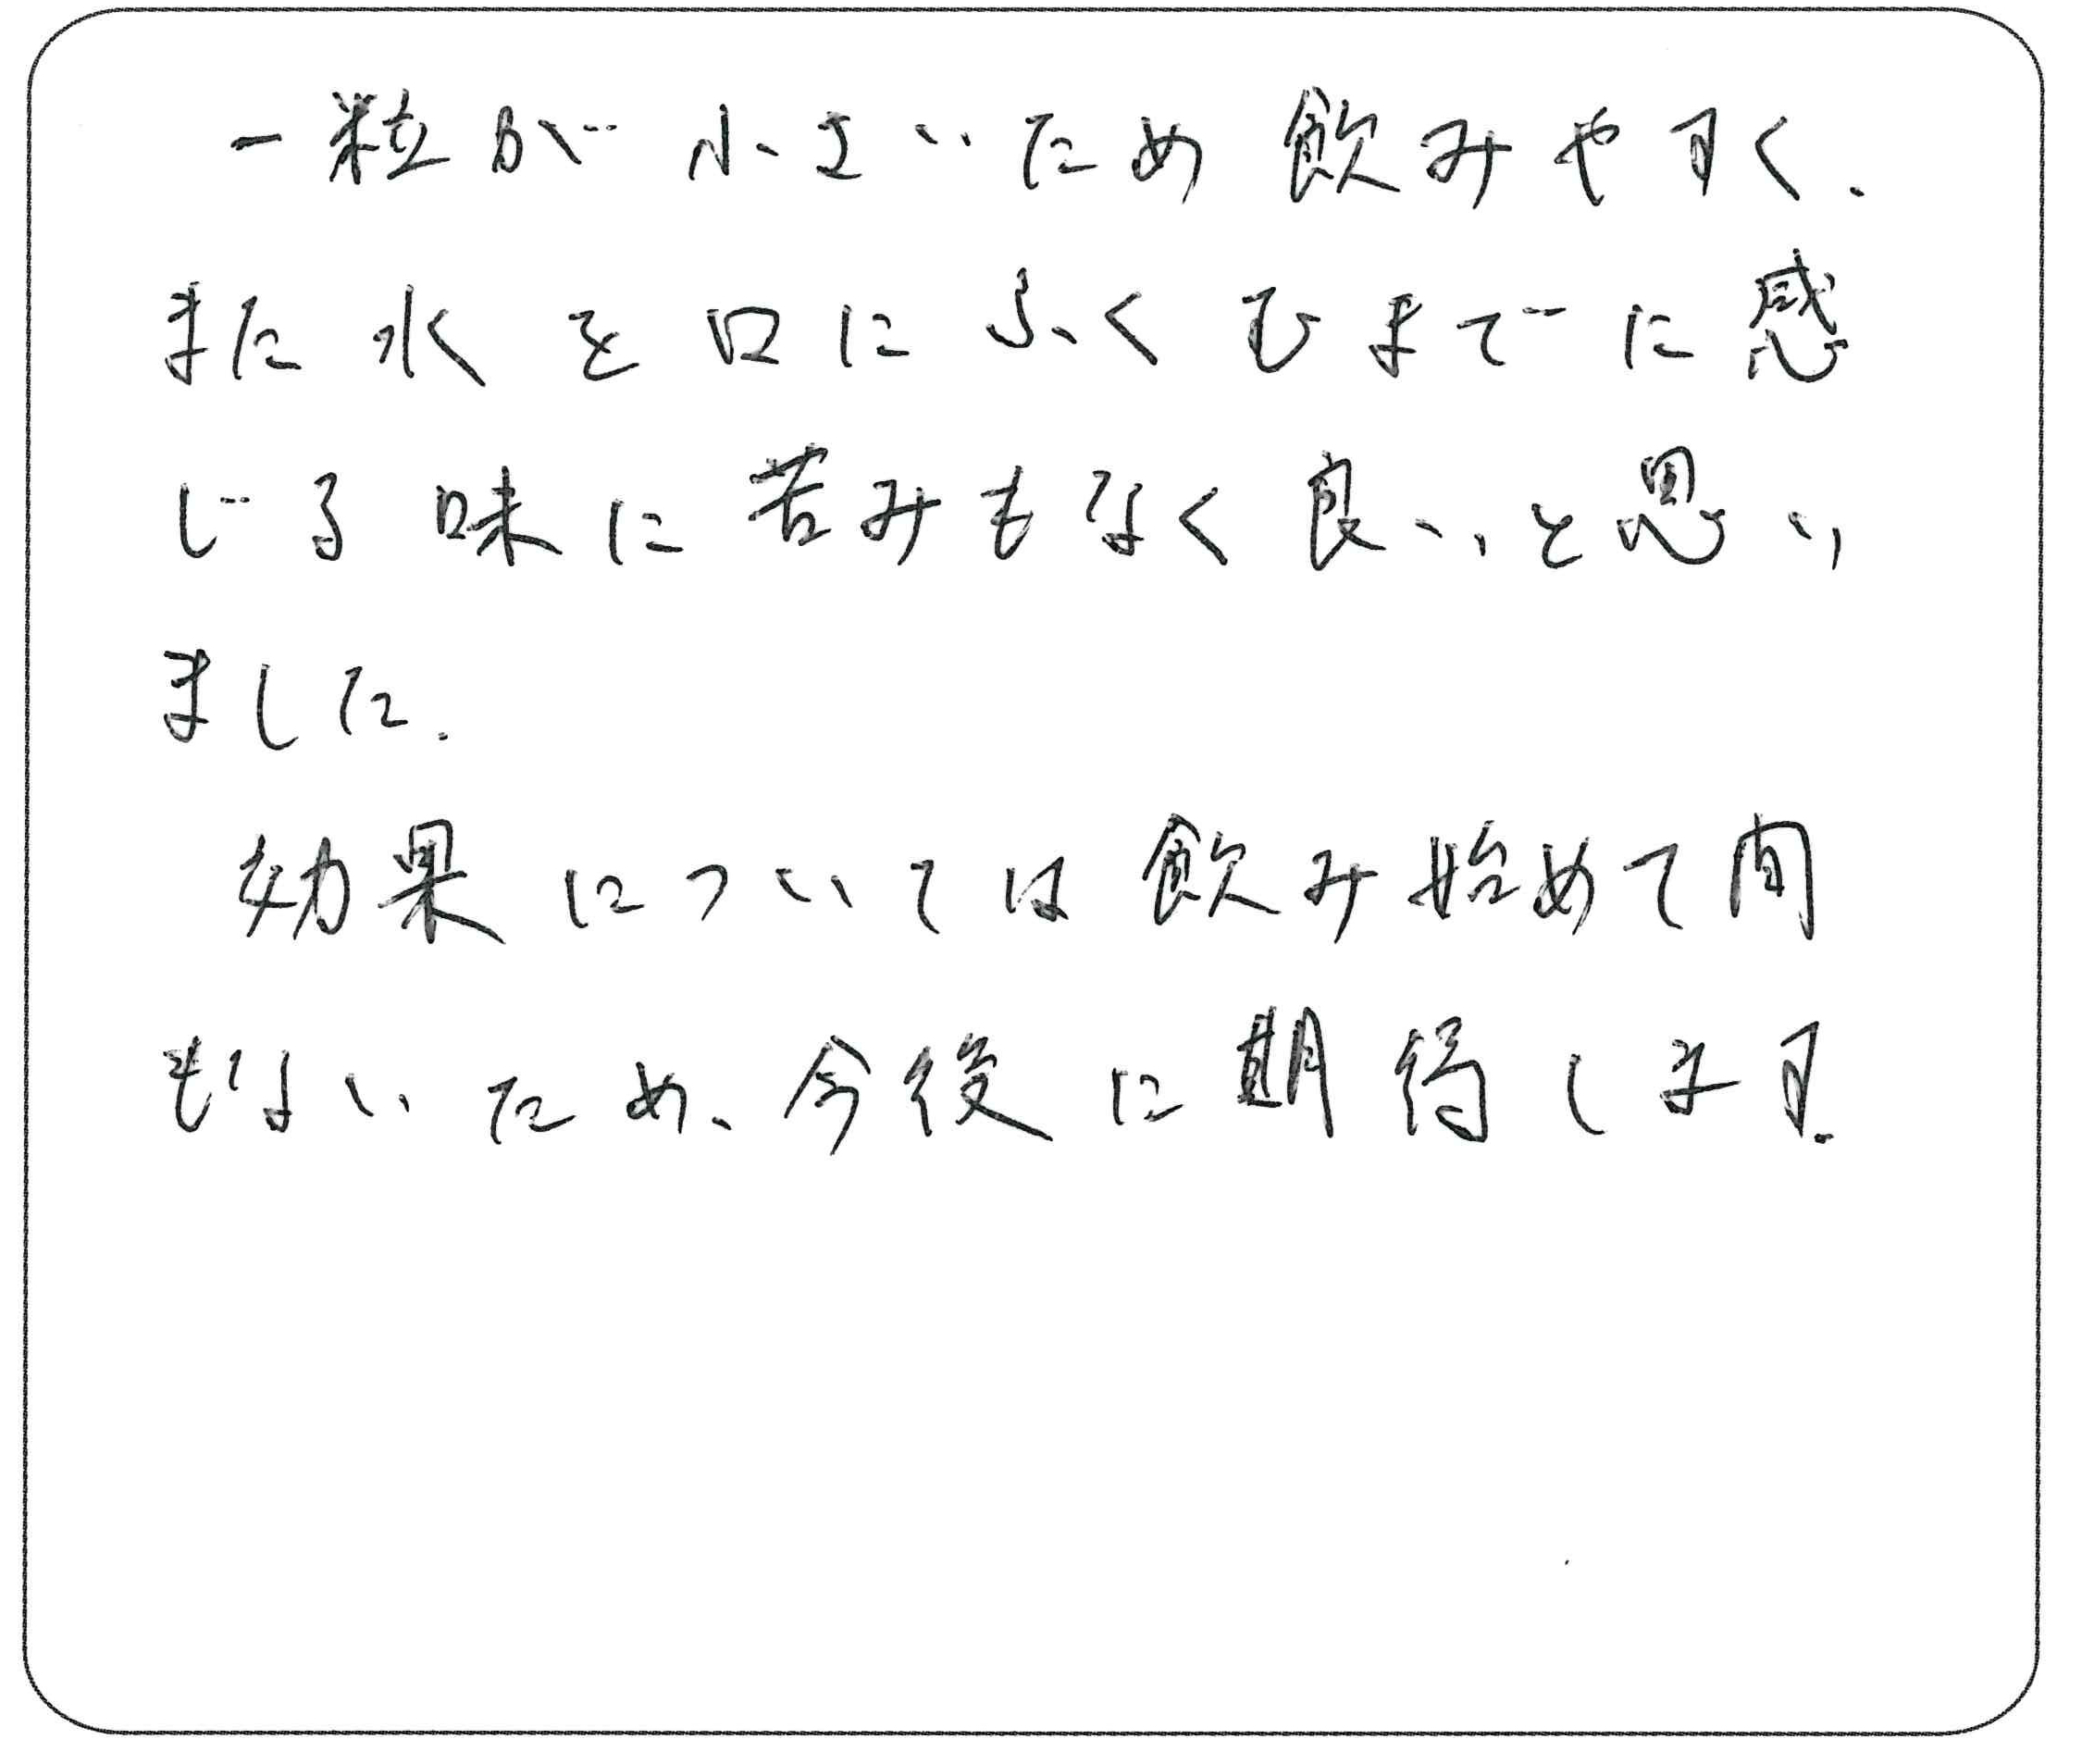 一粒が小さいため飲みやすく、
また水を口にふくむまでに感
じる味に苦みもなく良いと思い
ました。
効果については飲み始めて間
もないため、今後に期待します。